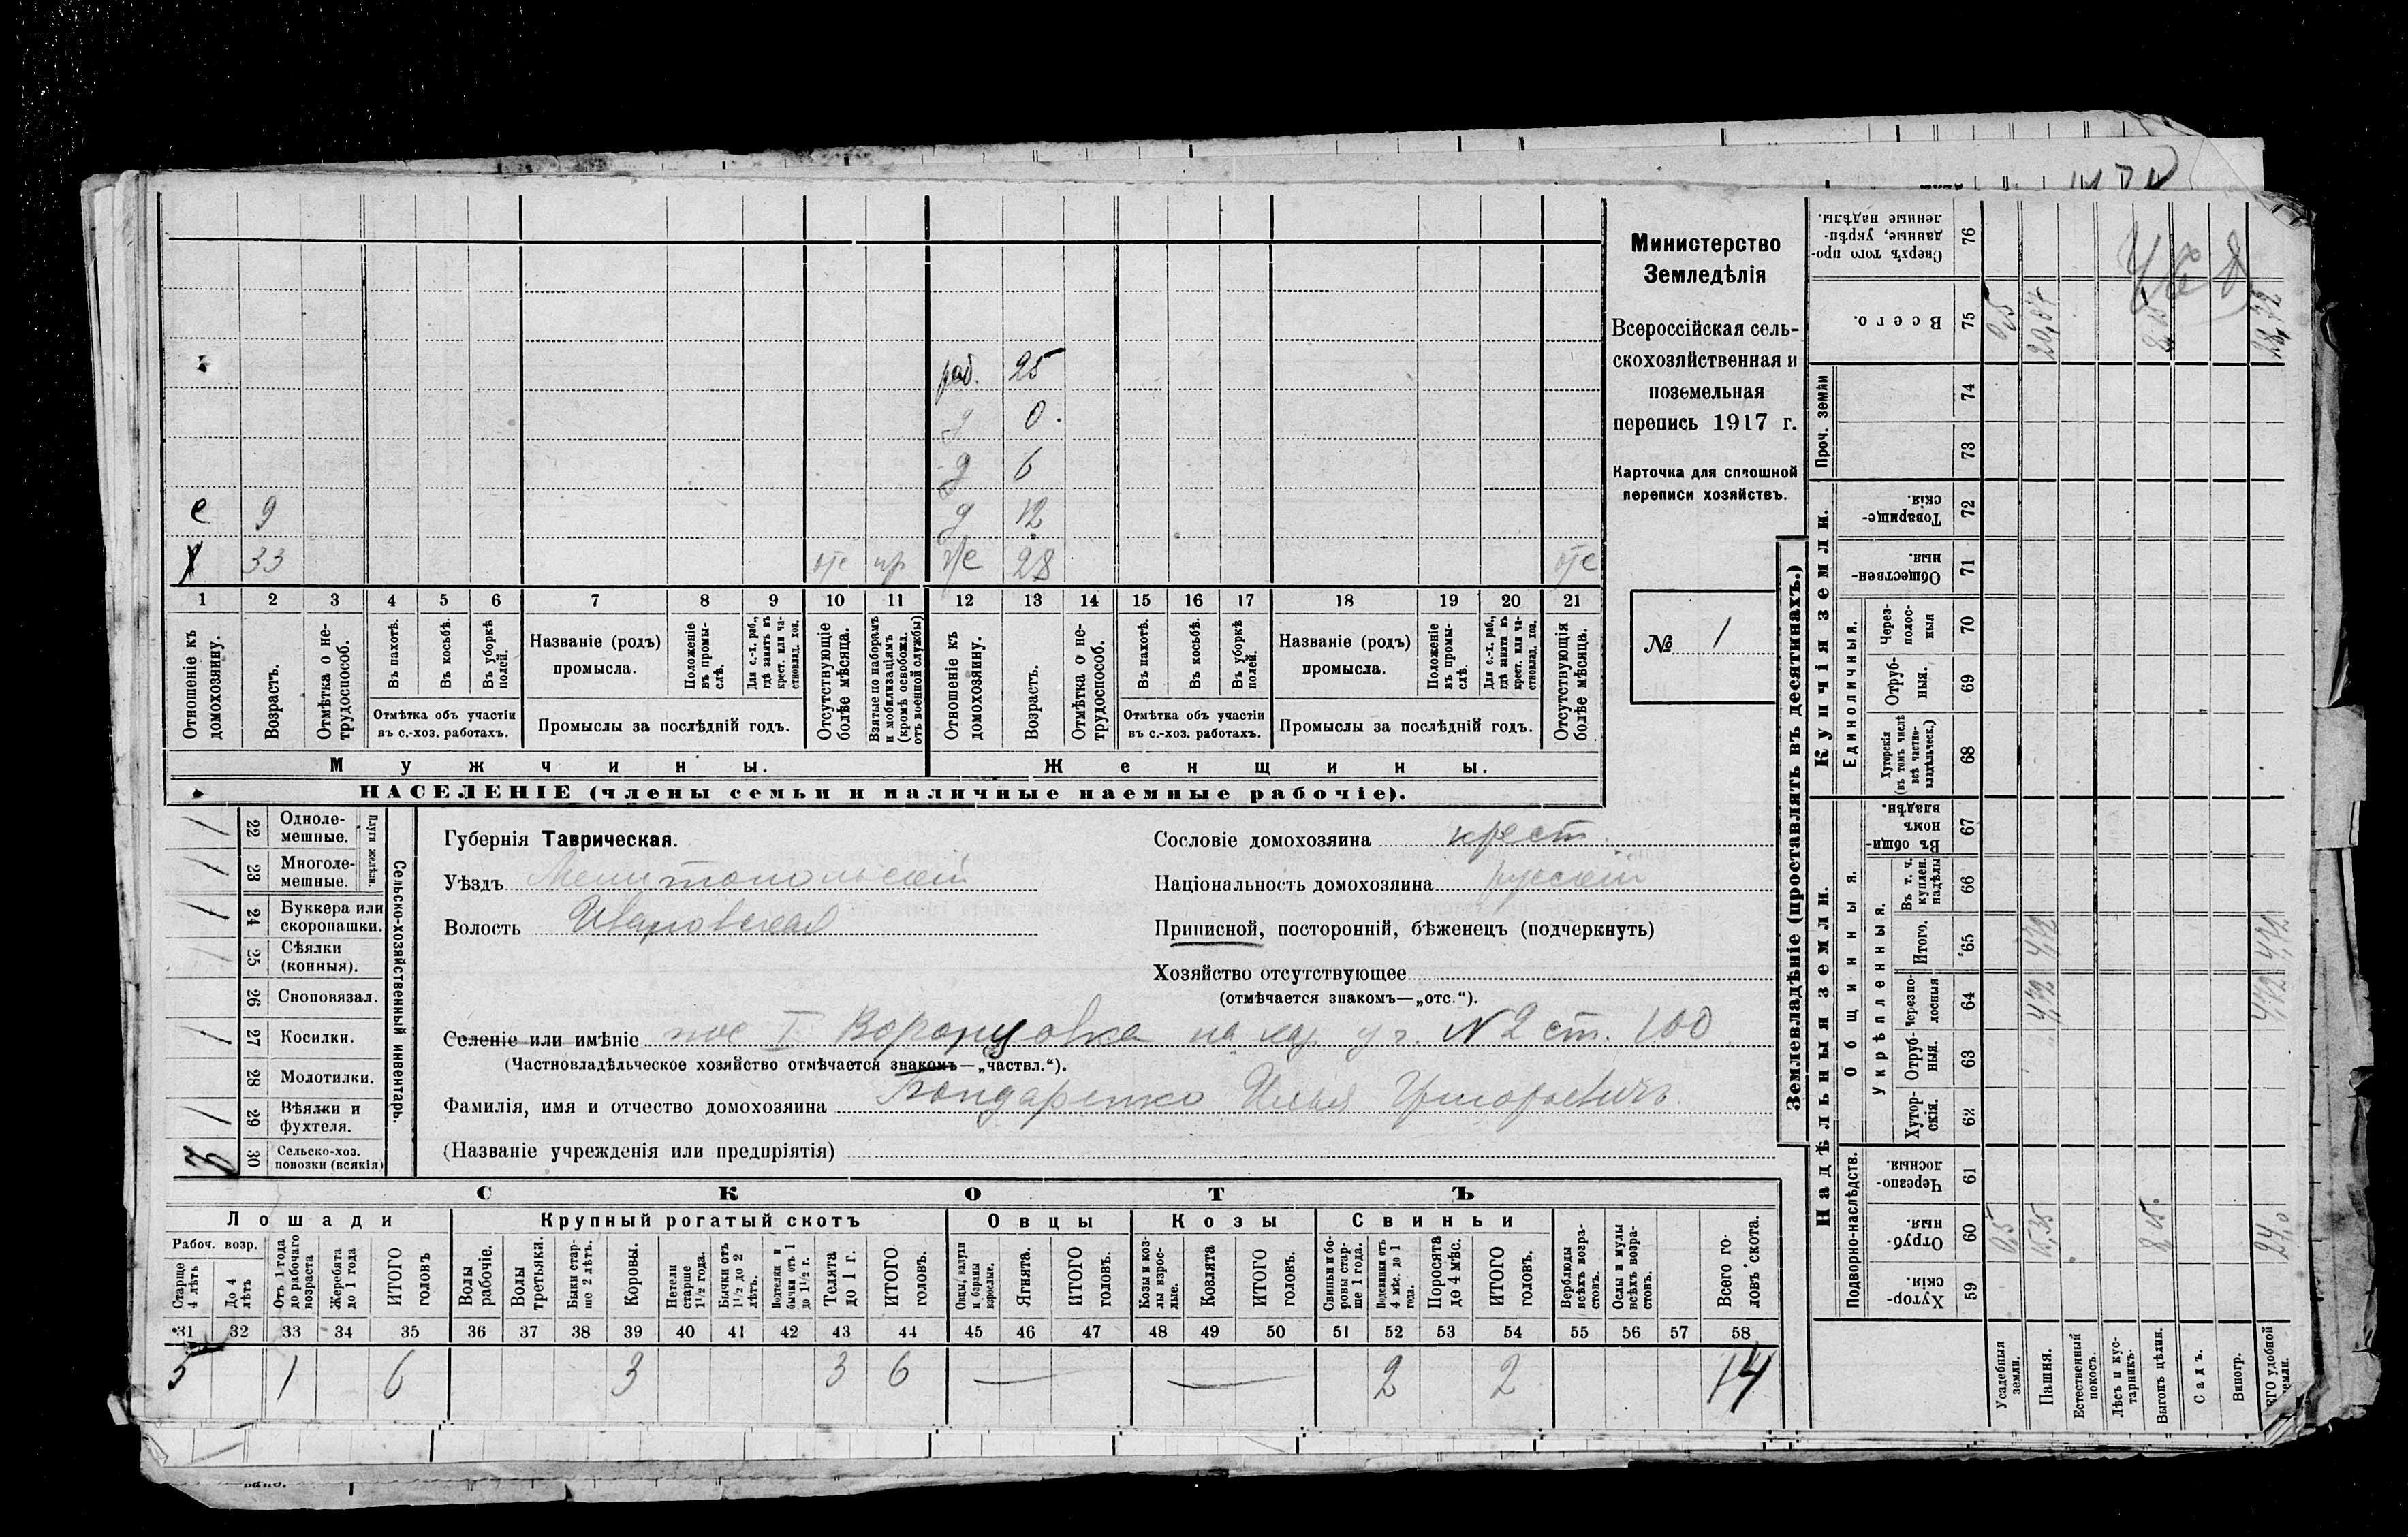 Министерство
Земледѣлія
Всероссійская сель-
скохозяйственная и
поземельная
перепись 1917 г.
Карточка для сплошной
переписи хозяйствъ.
№ 1
раб. 25
д 0
д 6
е 9 д 12
х 33 отс пр 28 отс
1 2 3 4 5 6 7 8 9 10 11 12 13 14 15 16 17 18 19 20 21
Отношеніе къ домохозяину.
Возрастъ.
Отмѣтка о не-трудоспособ.
Въ пахотѣ.
Въ косьбѣ.
Въ уборкѣ полей.
Отмѣтка объ участіи
въ с.-хоз. работахъ.
Названіе (родъ)
промысла.
Положеніе въ промы-слѣ.
Для с.-х. раб., гдѣ занятъ въ крест. или ча-стновлад. хоз.
Промыслы за послѣдній годъ.
Отсутствующіе болѣе мѣсяца.
Взятые по наборамъ и мобилизаціямъ (кромѣ освобожд. отъ военной службы)
Отношеніе къ домохозяину.
Возрастъ.
Отмѣтка о не-трудоспособ.
Въ пахотѣ.
Въ косьбѣ.
Въ уборкѣ полей.
Отмѣтка объ участіи
въ с.-хоз. работахъ.
Названіе (родъ)
промысла.
Положеніе въ промы-слѣ.
Для с.-х. раб., гдѣ занята въ крест. или ча-стновлад. хоз.
Промыслы за послѣдній годъ.
Отсутствующія болѣе мѣсяца.
Мужчины. Женщины.
НАСЕЛЕНІЕ (члены семьи и наличные наемные рабочіе).
Сельско-хозяйственный инвентарь.
Плуги желѣзн.
1 22 Одноле-мешные.
1 23 Многоле-мешные.
1 24 Буккера или скоропашки.
1 25 Сѣялки (конныя).
26 Сноповязал.
1 27 Косилки.
28 Молотилки.
1 29 Вѣялки и фухтеля.
3 30 Сельско-хоз. повозки (всякія)
Губернія Таврическая.
Уѣздъ Мелитопольскій
Волость Ивановская
Сословіе домохозяина крест.
Національность домохозяина русскій
Приписной, посторонній, бѣженецъ (подчеркнуть)
Хозяйство отсутствующее
(отмѣчается знакомъ—„отс.“).
Селеніе или имѣніе пос I Воронцовка на кар уч. № 2 ст. 100
(Частновладѣльческое хозяйство отмѣчается знакомъ—„частвл.“).
Фамилія, имя и отчество домохозяина Бондаренко Илья Григорьевичъ
(Названіе учрежденія или предпріятія)
СКОТЪ
Лошади Крупный рогатый скотъ Овцы Козы Свиньи
Рабоч. возр.
Старше 4 лѣтъ
До 4 лѣтъ
Отъ 1 года до рабочаго возраста
Жеребята до 1 года
ИТОГО головъ
Волы рабочіе.
Волы третьяки.
Быки стар-ше 2 лѣтъ.
Коровы.
Нетели старше 1½ года.
Бычки отъ 1½ до 2 лѣтъ.
Подтелки и бычки отъ 1 до 1½ г.
Телята до 1 г.
ИТОГО головъ.
Овцы, валухи и бараны взрослые.
Ягнята.
ИТОГО головъ.
Козы и коз-лы взрос-лые.
Козлята
ИТОГО головъ.
Свиньи и бо-ровы стар-ше 1 года.
Подсвинки отъ 4 мѣс. до 1 года.
Поросята до 4 мѣс.
ИТОГО головъ.
Верблюды всѣхъ возра-стовъ.
Ослы и мулы всѣхъ возра-стовъ.
Всего го-ловъ скота.
31 32 33 34 35 36 37 38 39 40 41 42 43 44 45 46 47 48 49 50 51 52 53 54 55 56 57 58
5 1 6 3 3 6 — — 2 2 14
Землевладѣніе (проставлять въ десятинахъ.)
Надѣльныя земли. Купчія земли.
Подворно-наслѣдств.
Общинныя.
Укрѣпленныя.
Единоличныя.
Проч. земли
Хутор-скія. 59
Отруб-ныя. 60
Черезпо-лосныя. 61
Хутор-скія. 62
Отруб-ныя. 63
Черезпо-лосныя 64
Итого. 65
Въ т. ч. куплен. надѣлы 66
Въ общи-номъ владѣн. 67
Хуторскія (въ томъ числѣ всѣ частно-владѣльческ.) 68
Отруб-ныя. 69
Через-полос-ныя 70
Обществен-ныя. 71
Товарище-скія. 72
73
74
Всего. 75
Сверхъ того про-данные, укрѣп-ленные надѣлы. 76
Усадебныя земли. 0,5 0,5
Пашня. 15,35 4,72 4,72 20,07
Естественный покосъ.
Лѣсъ и кус-тарникъ.
Выгонъ цѣлин. 8,15 8,15
Садъ.
Виногр.
удобной земли. 24,0 4,72 4,72 28,72